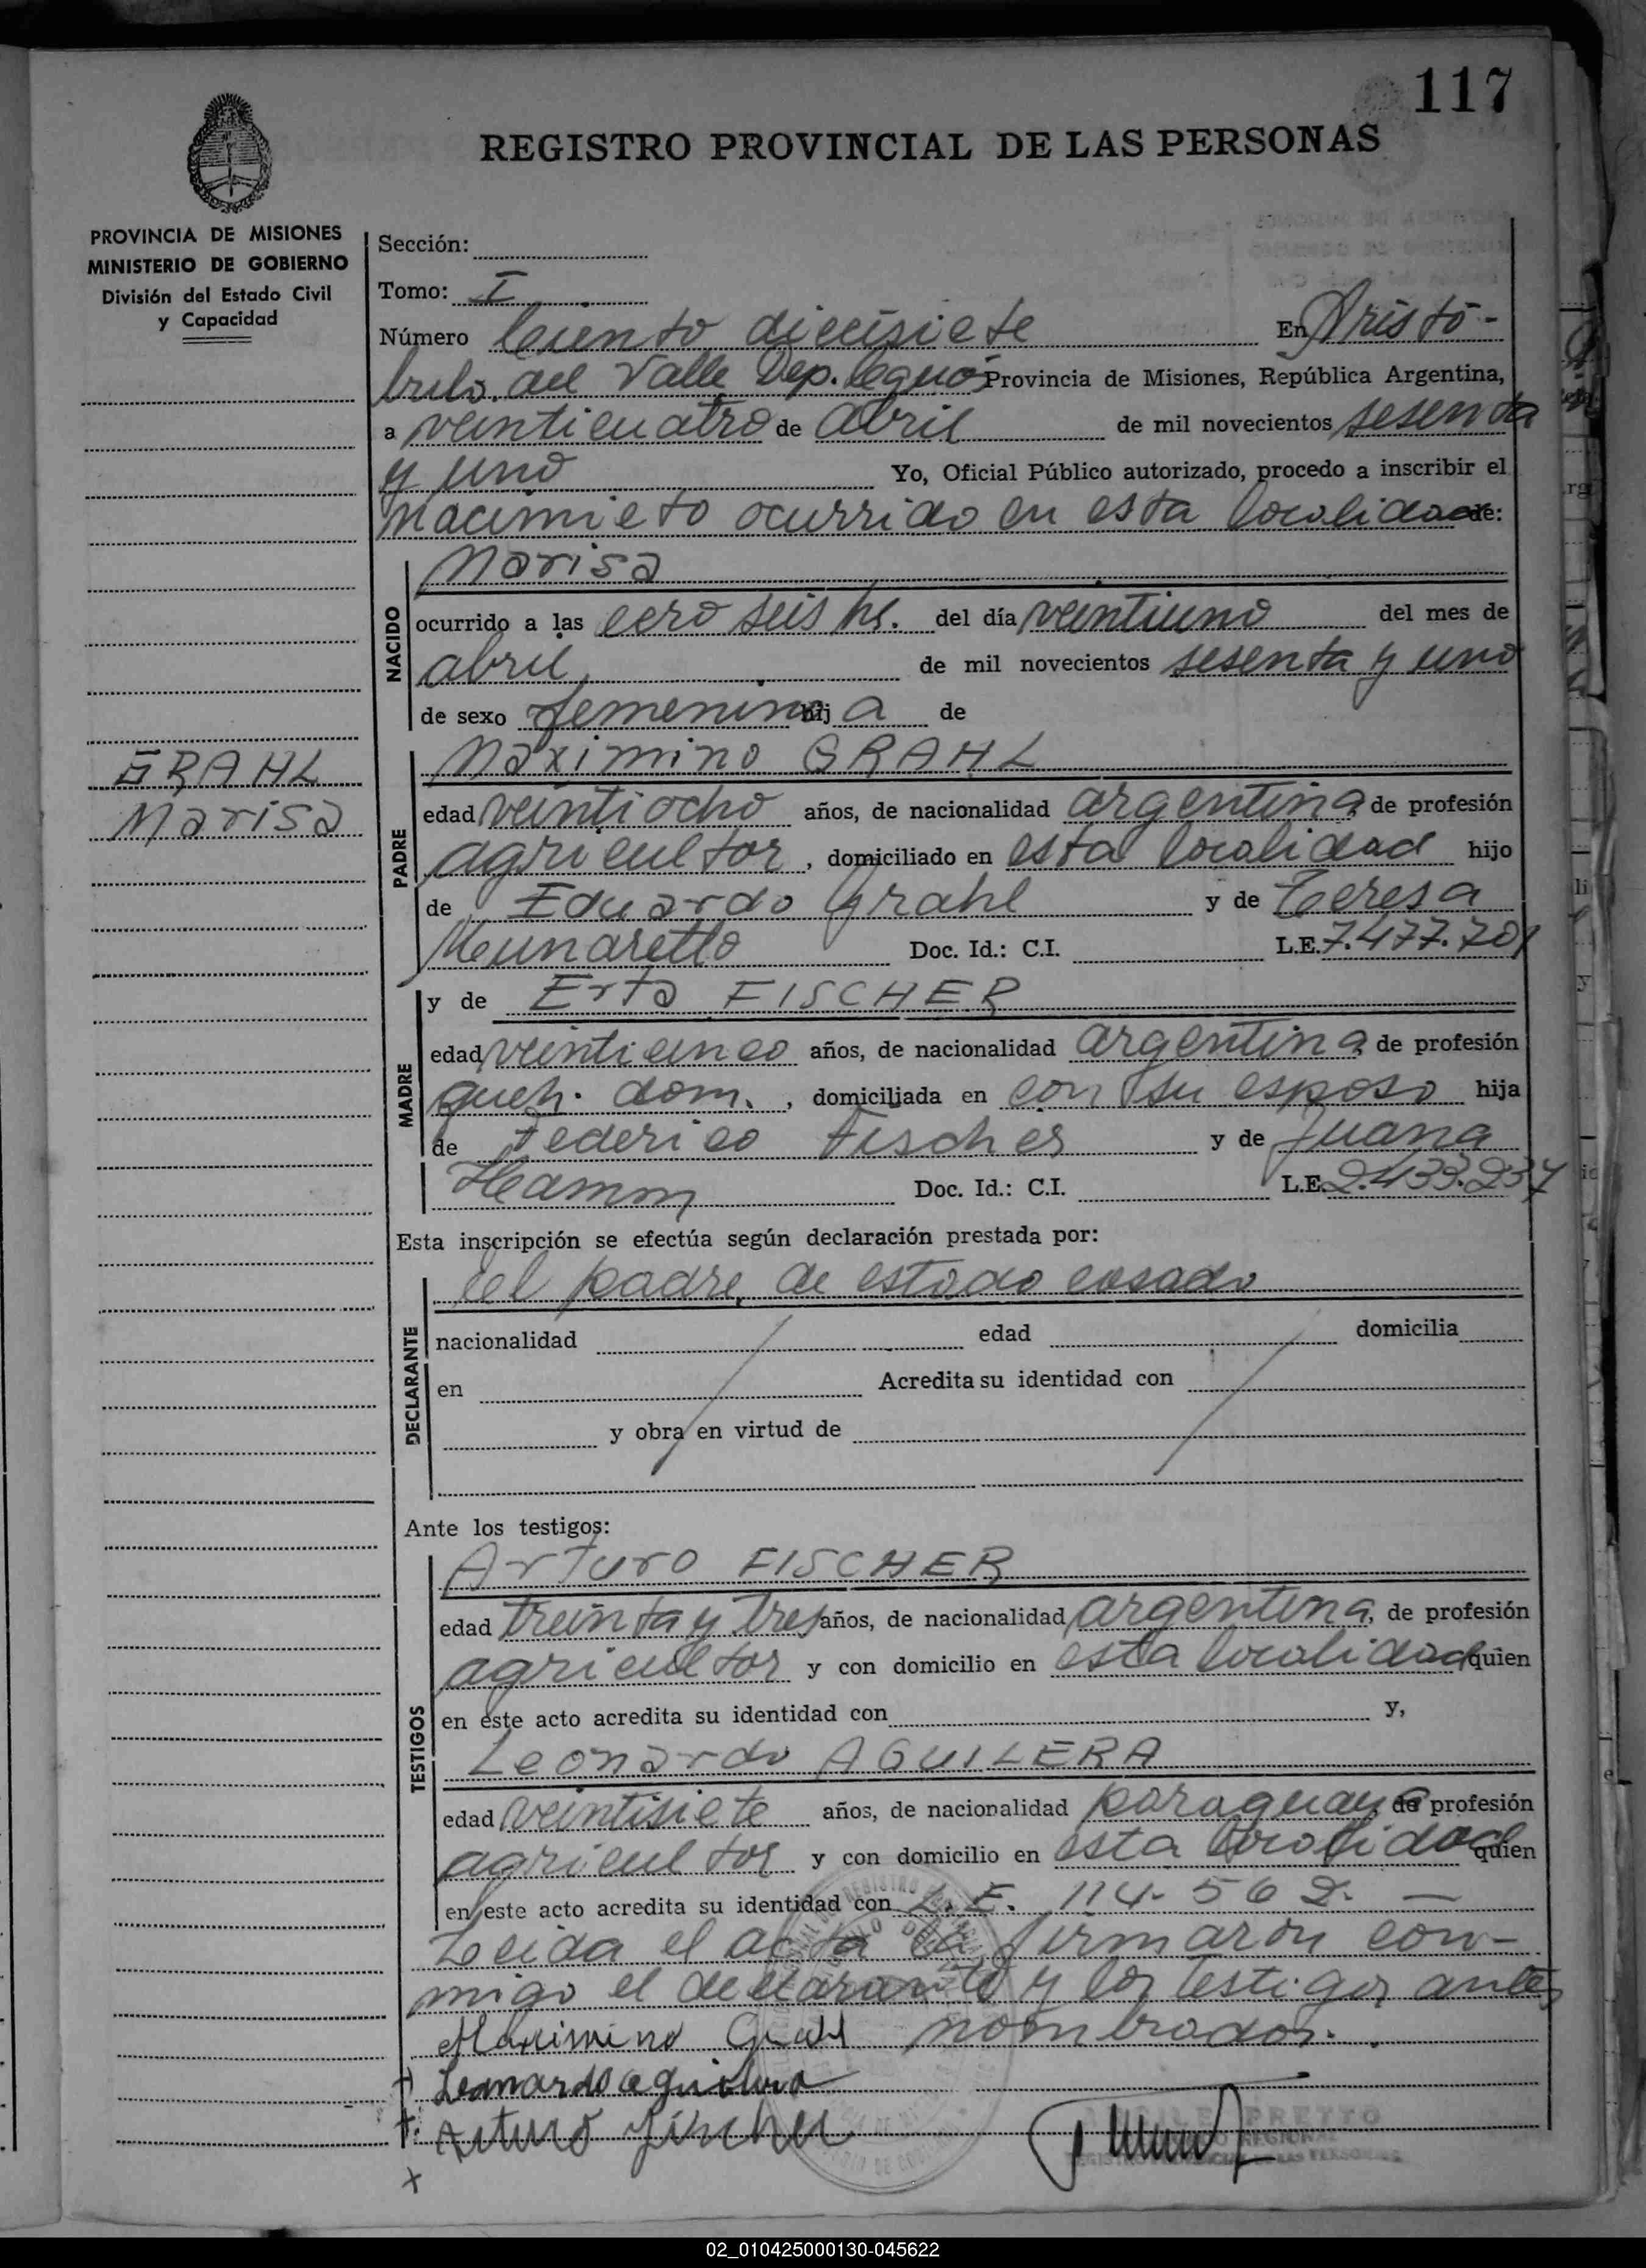 117
REGISTRO PROVINCIAL DE LAS PERSONAS
PROVINCIA DE MISIONES
MINISTERIO DE GOBIERNO
División del Estado Civil
y Capacidad
Sección:
Tomo: I
Número Ciento diecisiete En Aristó-
bulo del Valle Dep. Cguás Provincia de Misiones, República Argentina,
a veinticuatro de abril de mil novecientos sesenta
y uno Yo, Oficial Público autorizado, procedo a inscribir el
nacimieto ocurrido en esta localidad de:
NACIDO
Marisa
ocurrido a las cero seis hs. del día veintiuno del mes de
abril de mil novecientos sesenta y uno
de sexo femenino hij a de
GRAHL
Marisa
PADRE
Maximino GRAHL
edad veintiocho años, de nacionalidad argentina de profesión
agricultor, domiciliado en esta localidad hijo
de Eduardo Grahl y de Teresa
Munaretto Doc. Id.: C.I. L.E. 7.477.701
MADRE
y de Erta FISCHER
edad veinticinco años, de nacionalidad argentina de profesión
queh. dom., domiciliada en con su esposo hija
de Federico Fischer y de Juana
Hamm Doc. Id.: C.I. L.E. 2.433.237
Esta inscripción se efectúa según declaración prestada por:
DECLARANTE
el padre, de estado casado
nacionalidad edad domicilia
en Acredita su identidad con
y obra en virtud de
Ante los testigos:
TESTIGOS
Arturo FISCHER
edad treinta y tres años, de nacionalidad argentina, de profesión
agricultor y con domicilio en esta localidad quien
en este acto acredita su identidad con y,
Leonardo AGUILERA
edad veintisiete años, de nacionalidad paraguaya de profesión
agricultor y con domicilio en esta localidad quien
en este acto acredita su identidad con L.E. 114.562. —
Leida el acta la firmaron con-
migo el declarante y los testigos antes
Maximino Grahl nombrados.
Leonardo aguilera
Arturo Fischer
PRETTO
02_010425000130-045622